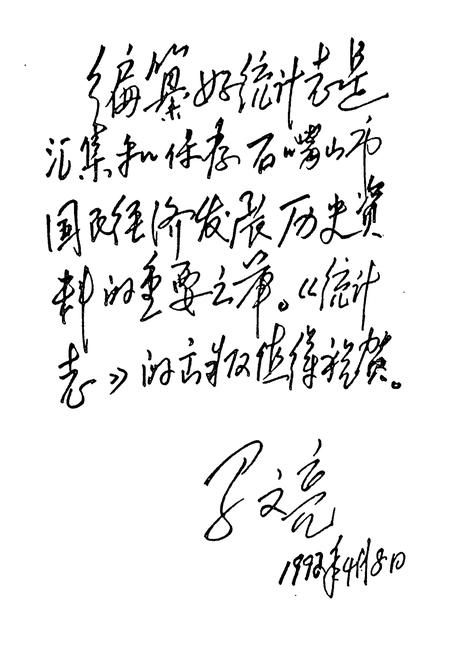 编纂好统计志是
汇集和保存石嘴山市
国民经济发展历史资
料的重要之举。《统计
志》的出版值得祝贺。
文亮
1993年4月8日